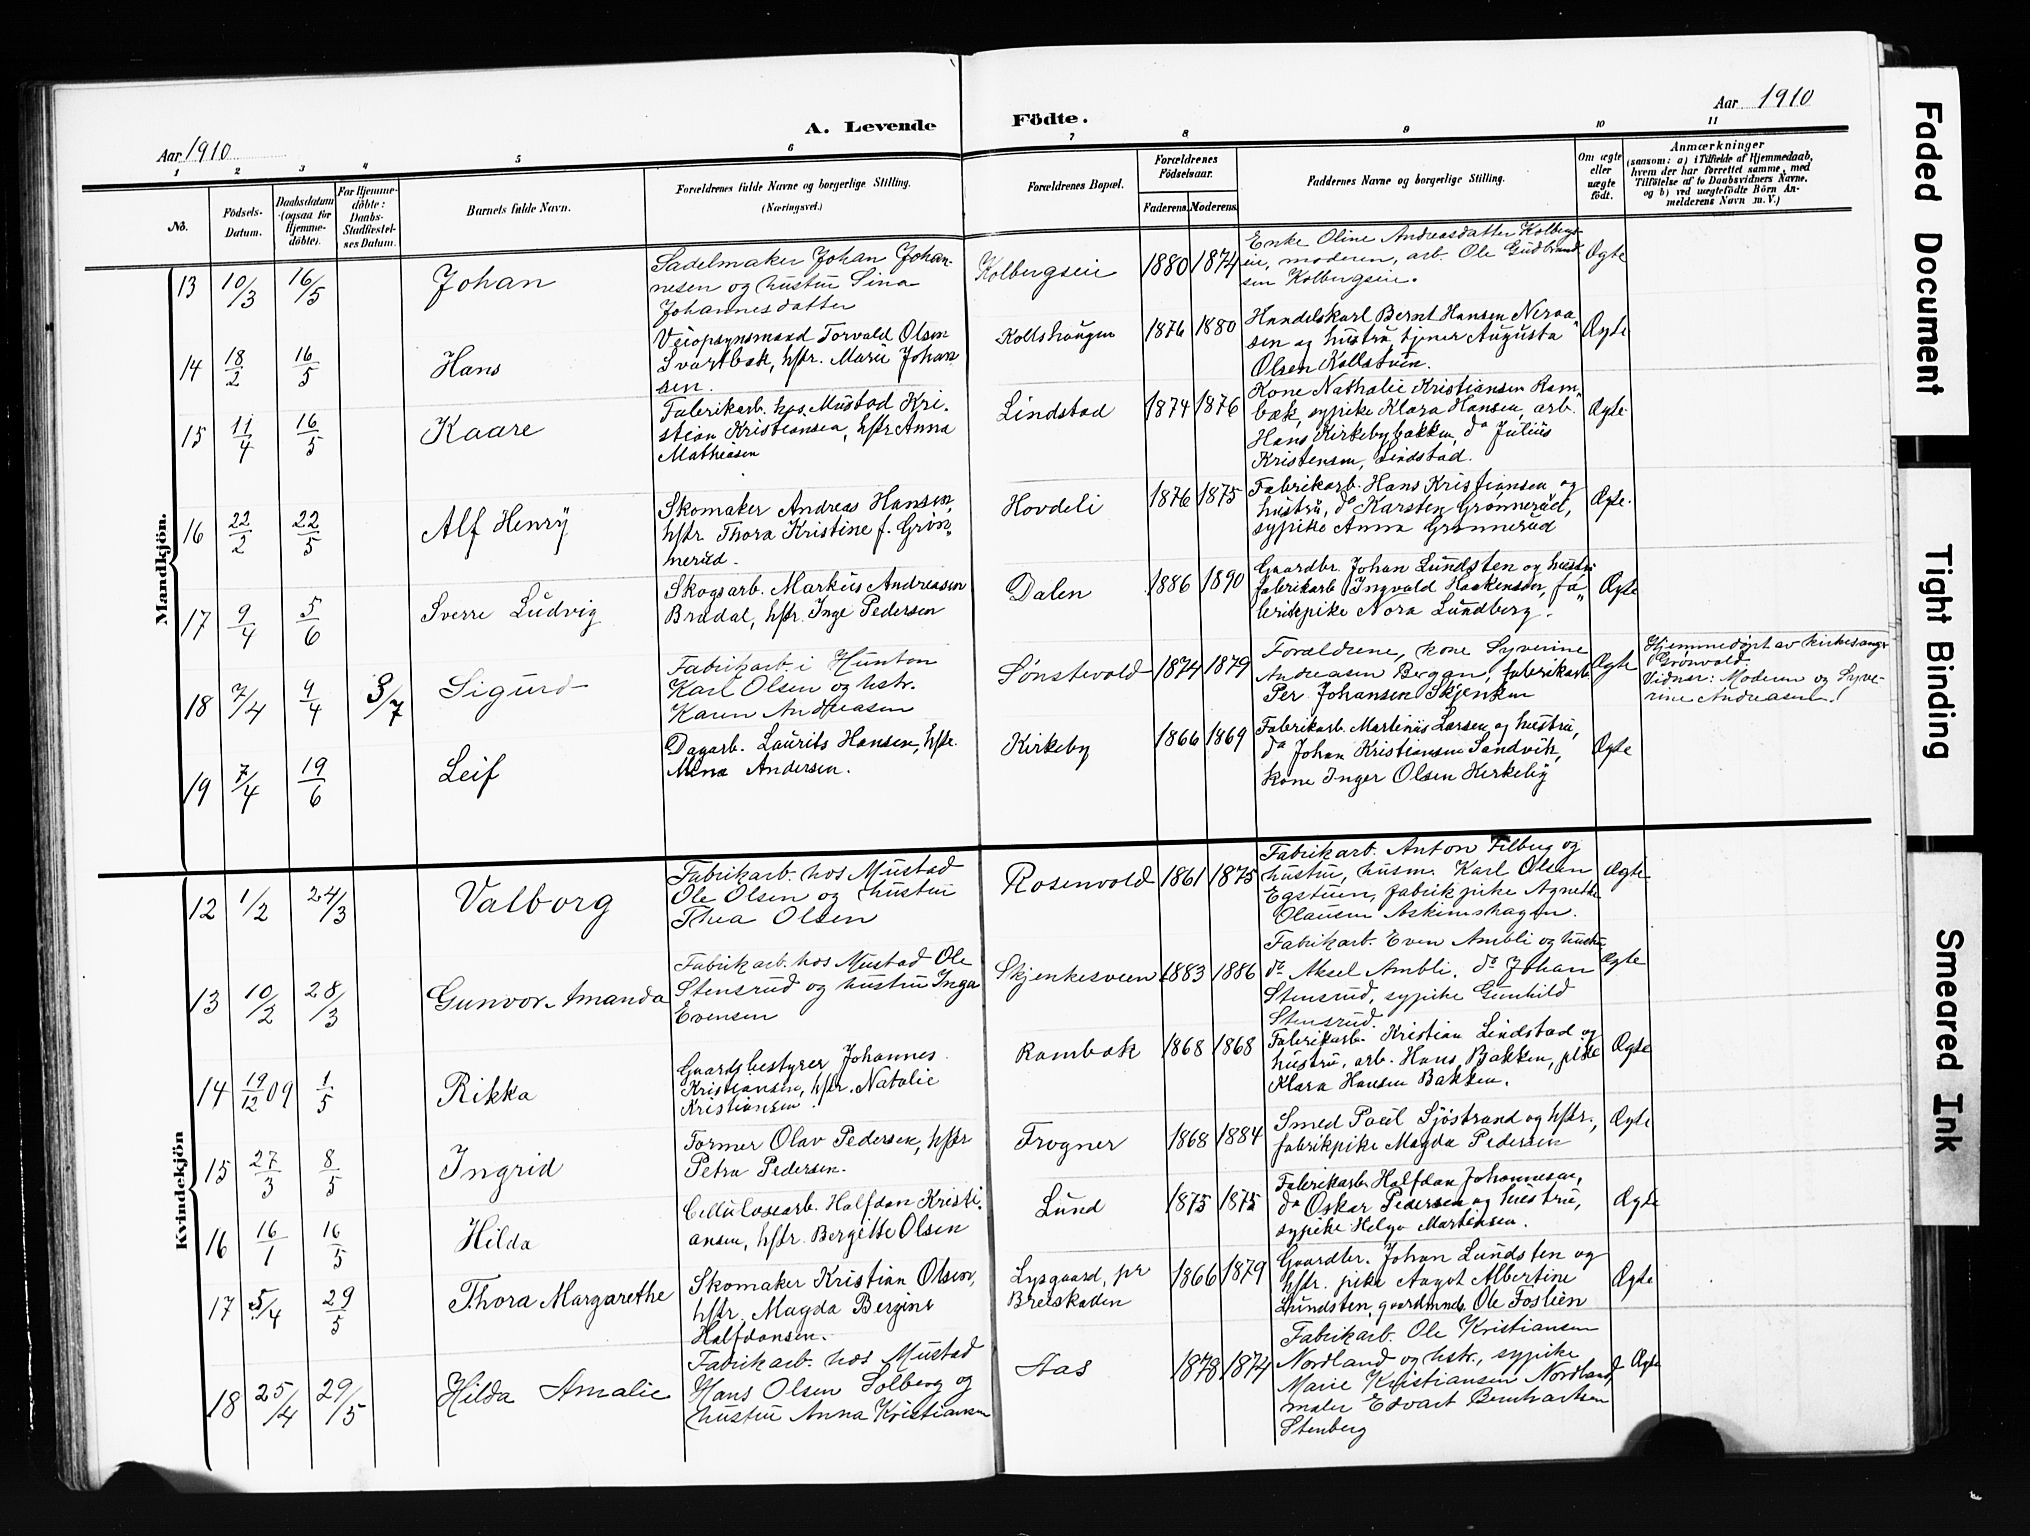 Aar 1910
A. Levende Födte.
Aar 1910
1 2 3 4 5 6 7 8 9 10 11
No.
Födsels-Datum.
Daabsdatum (ogsaa for Hjemmedöbte).
For Hjemmedöbte: Daabs-Stadfæstelses Datum.
Barnets fulde Navn.
Forældrenes fulde Navne og borgerlige Stilling. (Næringsvei.)
Forældrenes Bopæl.
Forældrenes Födselsaar.
Faderens. Moderens.
Faddernes Navne og borgerlige Stilling.
Om ægte eller uægte födt.
Anmærkninger
(saasom: a) i Tilfælde af Hjemmedaab,
hvem der har forrettet samme, med
Tilföielse af to Daabsvidners Navne.
og b) ved uægtefödte Börn An-
melderens Navn m. V.)
Mandkjön.
13 10/3 16/5 Johan
Sadelmaker Johan Johan-
nesen og hustru Sina
Johannesdatter
Kolbergseie 1880 1874
Enke Oline Andreasdatter Kolbergs-
eie, moderen, arb. Ole Gudbrand
sen Kolbergseie.
Ægte
14 18/2 16/5 Hans
Veiopsynsmand Torvald Olsen
Svartbak, hstr. Marie Johan
sen.
Koltshaugen 1876 1880
Handelskarl Bernt Hansen Neraa
sen og hustru, tjener Augusta
Olsen Kollstuen.
Ægte
15 11/4 16/5 Kaare
Fabrikarb. hos Mustad Kri-
stian Kristiansen, hstr Anna
Mathiasen
Lindstad 1874 1876
Kone Nathalie Kristiansen Ram
bæk, sypike Klara Hansen, arb.
Hans Kirkebybakken, do Julius
Kristensen, Lindstad.
Ægte
16 22/2 22/5 Alf Henry
Skomaker Andreas Hansen,
hstr Thora Kristine f. Grøn
nerud.
Hovdeli 1876 1875
Fabrikarb. Hans Kristiansen og
hustru, do Karsten Grønnerud,
sypike Anna Grønnerud
Ægte
17 9/4 5/6 Sverre Ludvig
Skogsarb. Markus Andreasen
Bradal, hstr. Inga Pedersen
Dalen 1886 1890
Gaardbr. Johan Lundsten og hustru
fabrikarb Ingvald Haakensen, fa
brikpike Nora Lundberg.
Ægte
18 7/4 9/4 3/7 Sigurd
Fabrikarb. i Hunton
Karl Olsen og hstr.
Karen Andreasen
Sønstevold 1874 1879
Forældrene, kone Syverine
Andreasen Bergan, fabrikarb.
Per Johansen Skjenken
Ægte
Hjemmedøpt av kirkesanger
Grønvold.
Vidner: Moderen og Syve-
rine Andreasen.
19 7/4 19/6 Leif
Dagarb. Laurits Hansen, hstr.
Mina Andersen.
Kirkeby 1866 1869
Fabrikarb. Martinius Larsen og hustru,
do Johan Kristiansen Sandvik,
kone Inger Olsen Kirkeby
Ægte
Kvindekjön
12 1/2 24/3 Valborg
Fabrikarb. hos Mustad
Ole Olsen og hustru
Thea Olsen
Rosenvold 1861 1875
Fabrikarb. Anton Filbug og
hustru, husm. Karl Olsen
Egstuen, fabrikpike Agnethe
Olausen Askimshagen.
Ægte
13 10/2 28/3 Gunvor Amanda
Fabrikarb. hos Mustad Ole
Stensrud og hustru Inga
Evensen
Skjenkesveen 1883 1886
Fabrikarb. Even Ambli og hustru
do Aksel Ambli, do Johan
Stensrud, sypike Gunhild
Stensrud.
Ægte
14 19/12 09 1/5 Rikka
Gaardsbestyrer Johannes
Kristiansen, hstr. Natalie
Kristiansen.
Rambæk 1868 1868
Fabrikarb. Kristian Lindstad og
hustru, arb. Hans Bakken, pike
Klara Hansen Bakken.
Ægte
15 27/3 8/5 Ingrid
Former Olav Pedersen, hstr
Petra Pedersen.
Frogner 1868 1884
Smed Paul Sjöstrand og hstr.,
fabrikpike Magda Pedersen
Ægte
16 16/1 16/5 Hilda
Cellulosearb. Halfdan Kristi-
ansen, hstr. Bergitte Olsen
Lund 1875 1875
Fabrikarb Halfdan Johannesen,
do Oskar Pedersen og hustru,
sypike Helga Martinsen.
Ægte
17 5/4 29/5 Thora Margarethe
Skomaker Kristian Olsen,
hstr. Magda Bergine
Halfdansen.
Lysgaard, pr
Breiskallen
1866 1879
Gaardbr. Johan Lundsten og
hstr. pike Aagot Albertine
Lundsten, gaardmnd. Ole Foslien
Ægte
18 25/4 29/5 Hilda Amalie
Fabrikarb. hos Mustad
Hans Olsen Solberg og
hustru Anna Kristiansen
Aas 1878 1874
Fabrikarb. Ole Kristiansen
Nordland og hstr., sypike
Marie Kristiansen Nordland,
maler Edvart Bernhartsen
Stenberg
Ægte
Faded Document
Tight Binding
Smeared Ink